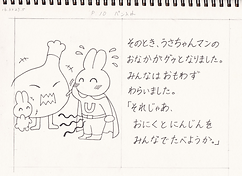 そのとき、うさちゃんマンの
おなかがグッとなりました。
みんなはおもわず
わらいました。
「それじゃあ、
おにくとにんじんを
みんなでたべようか。」